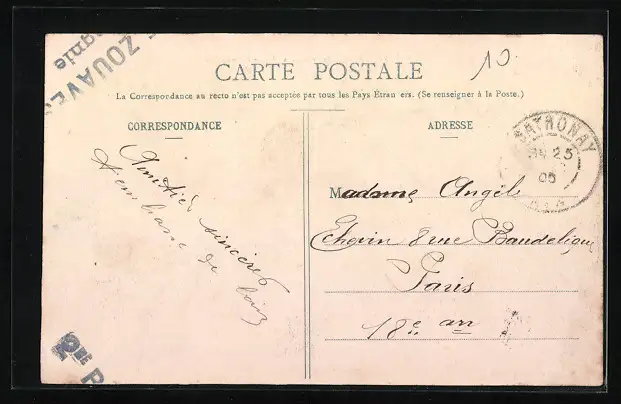 ZOUAVES
gnie
CARTE POSTALE
10.
La Correspondance au recto n'est pas acceptée par tous les Pays Étran ers. (Se renseigner à la Poste.)
CORRESPONDANCE
ADRESSE
SATHONAY
25
05
Amitiés sincères
de loin
Madame Angèle
8 rue Baudelique
Paris
18e arr
2ME